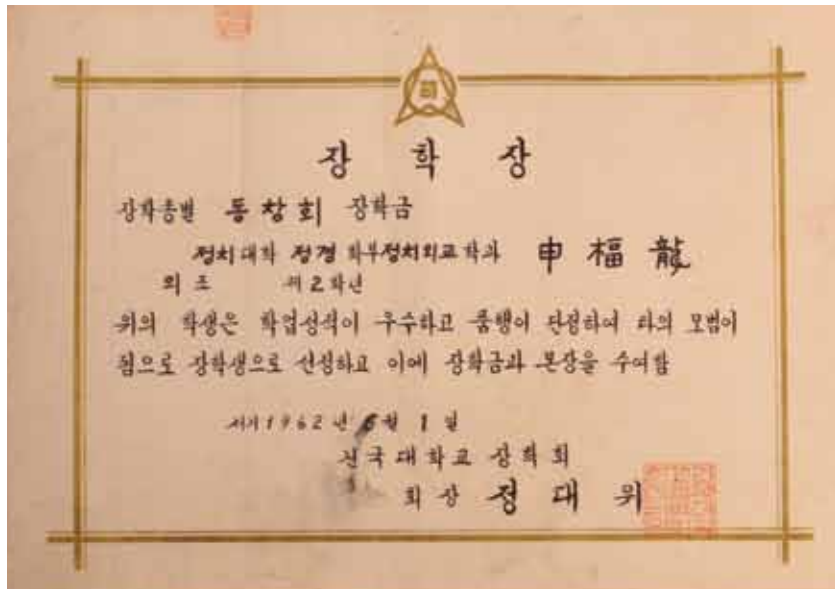 장 학 장
장학종별 동창회 장학금
정치대학 정경학부 정치외교학과 申福龍
제2학년
위의 학생은 학업성적이 우수하고 품행이 단정하여 타의 모범이
됨으로 장학생으로 선정하고 이에 장학금과 본장을 수여함
서기1962년 6월 1일
건국대학교 장학회
회장 정대위